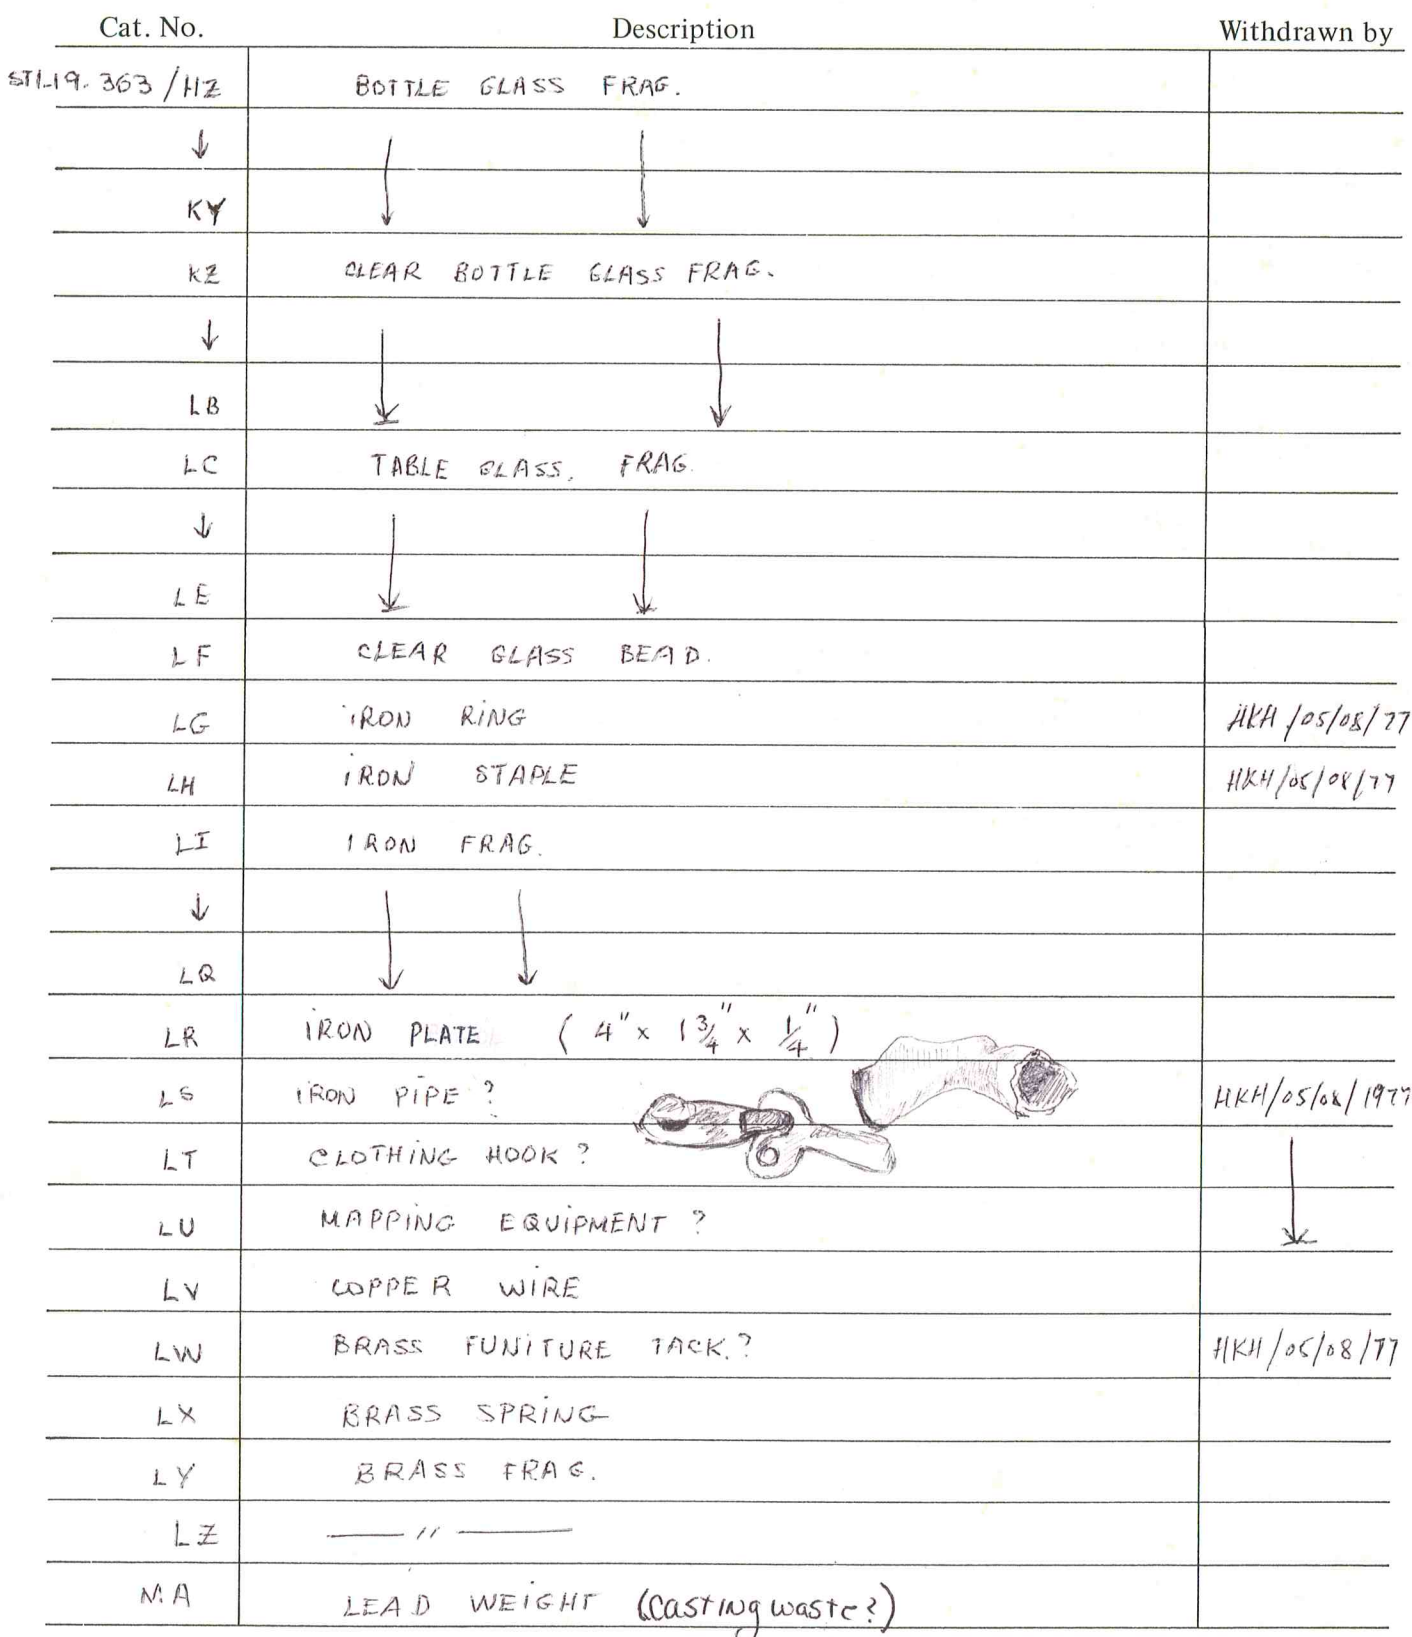 Cat. No. Description Withdrawn by
ST1-19. 363 / HZ BOTTLE GLASS FRAG.
↓ ↓ ↓
KY
KZ CLEAR BOTTLE GLASS FRAG.
↓ ↓ ↓
LB
LC TABLE GLASS, FRAG.
↓ ↓ ↓
LE
LF CLEAR GLASS BEAD.
LG IRON RING HKH /05/08/77
LH IRON STAPLE HKH/05/08/77
LI IRON FRAG.
↓ ↓ ↓
LQ
LR IRON PLATE ( 4" x 1 3/4" x 1/4" )
LS IRON PIPE ? HKH/05/08/1977
LT CLOTHING HOOK ? ↓
LU MAPPING EQUIPMENT ?
LV COPPER WIRE
LW BRASS FUNITURE TACK.? HKH/05/08/77
LX BRASS SPRING
LY BRASS FRAG.
LZ —— " ——
MA LEAD WEIGHT (casting waste?)